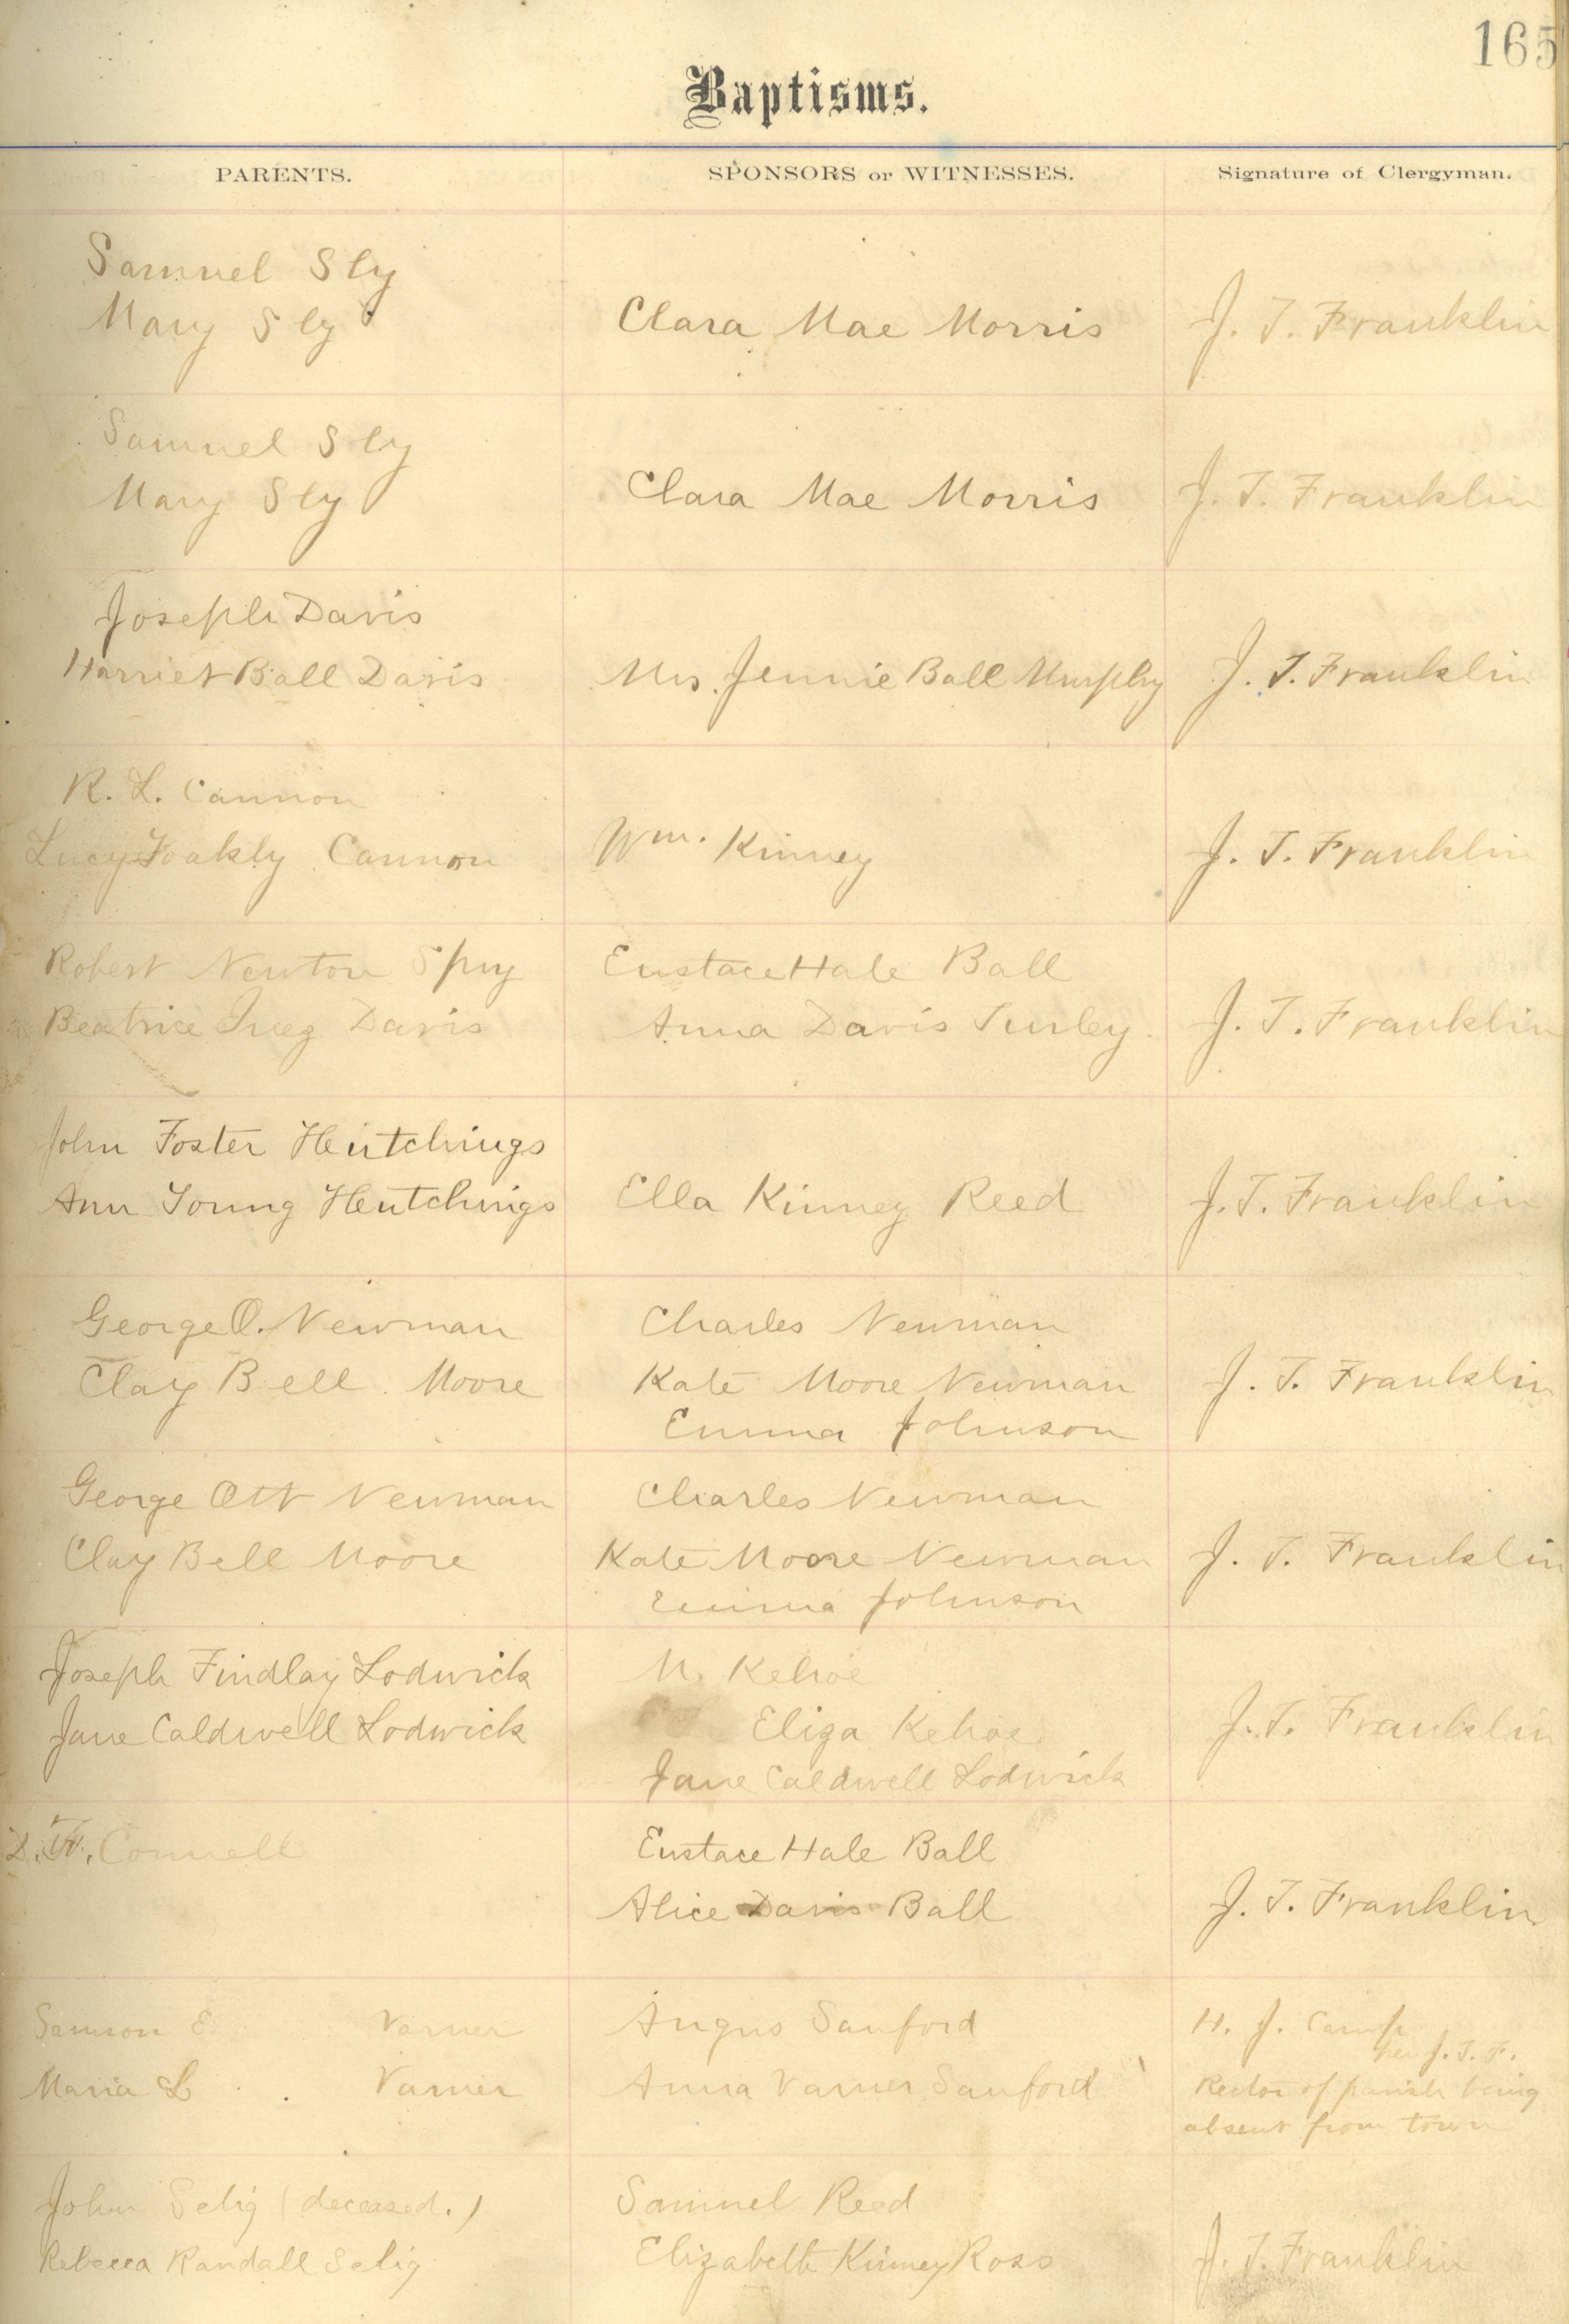 165
Baptisms.
PARENTS. SPONSORS or WITNESSES. Signature of Clergyman.
Samuel Sly
Mary Sly
Clara Mae Morris
J. T. Franklin
Samuel Sly
Mary Sly
Clara Mae Morris
J. T. Franklin
Joseph Davis
Harriet Ball Davis
Mrs. Jennie Ball Murphy
J. T. Franklin
R. L. Cannon
Lucy Cannon
Wm. Kinney
J. T. Franklin
Robert Newton Spry
Beatrice Inez Davis
Eustace Hale Ball
Anna Davis Turley
J. T. Franklin
John Foster Hutchings
Ann Young Hutchings
Ella Kinney Reed
J. T. Franklin
George O. Newman
Clay Bell Moore
Charles Newman
Kate Moore Newman
Emma Johnson
J. T. Franklin
George Ott Newman
Clay Bell Moore
Charles Newman
Kate Moore Newman
Emma Johnson
J. T. Franklin
Joseph Findlay Lodwick
Jane Caldwell Lodwick
M. Kehoe
Eliza Kehoe
Jane Caldwell Lodwick
J. T. Franklin
Connell
Eustace Hale Ball
Alice Davis Ball
J. T. Franklin
Samson E. Varner
Maria L. Varner
Angus Sanford
Anna Varner Sanford
H. J. Camp
per J. T. F.
Rector of parish being
absent from town
John Selig (deceased.)
Rebecca Randall Selig
Samuel Reed
Elizabeth Kinney Ross
J. T. Franklin